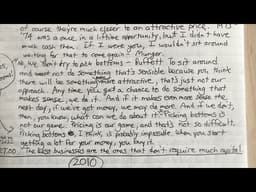 of course they're much closer to an attractive price.
'74 was a once in a lifetime opportunity, but I didn't have
much cash then. If I were you, I wouldn't sit around
waiting for that to come again. Munger.
No, we don't try to pick bottoms - Buffett. To sit around
and not do something that's sensible because you think
there will be something more attractive, that's just not our
approach. Any time you get a chance to do something that
makes sense, we do it. And if it makes even more sense the
next day, if we've got money, we may do more. And if we don't,
then, you know, what can we do about it. Picking bottoms is
not our game. Pricing is our game, and that's not so difficult.
Picking bottoms, I think, is probably impossible. When you start
getting a lot for your money, you buy it.
The best businesses are the ones that don't require much capital
(2010)